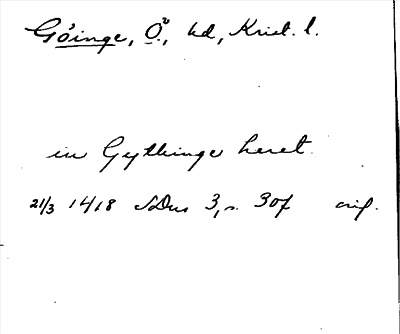 Göinge, Ö., hd, Krist. l.
in Gythinge heret
21/3 1418 SDns 3, s. 30f orig.